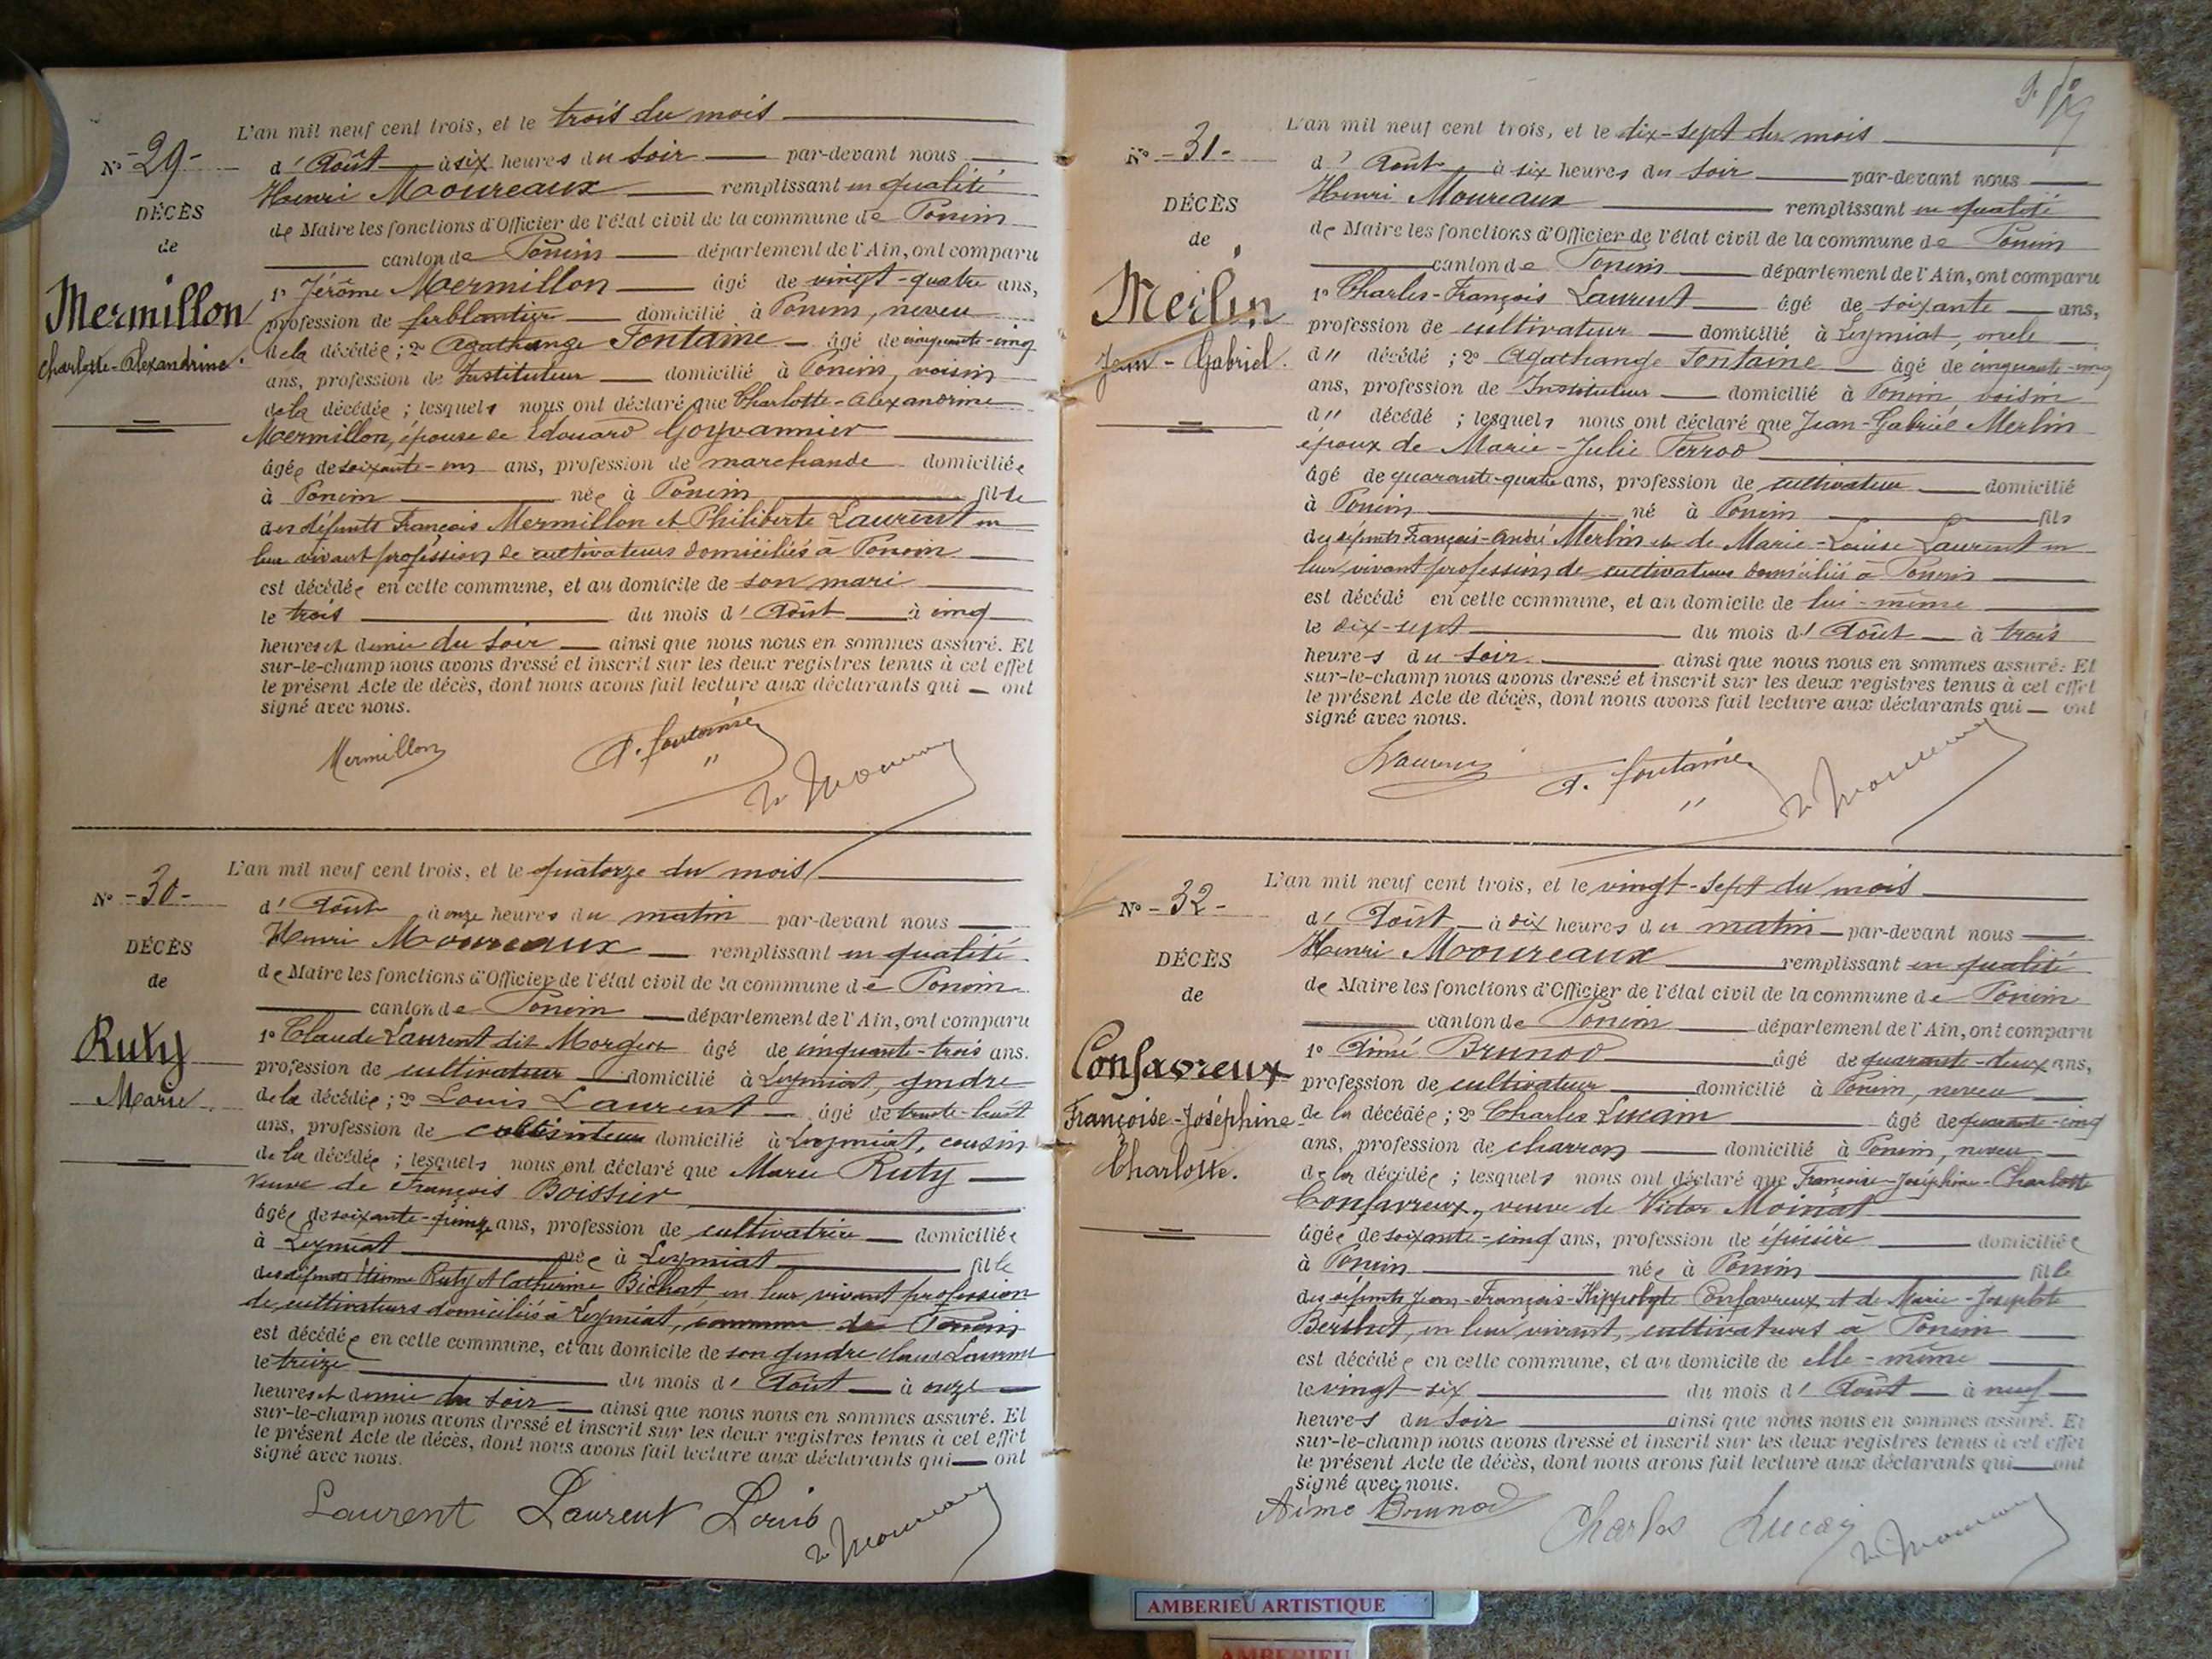 L'an mil neuf cent trois, et le trois du mois
N° -29-
d'Août à six heures du soir par-devant nous
Henri Moureaux remplissant en qualité
DÉCÈS
de Maire les fonctions d'Officier de l'état civil de la commune de Poncin
de
canton de Poncin département de l'Ain, ont comparu
Mermillon
1° Jérôme Mermillon âgé de vingt-quatre ans,
profession de ferblantier domicilié à Poncin, neveu
Charlotte-Alexandrine.
de la décédée ; 2° Agathange Fontaine âgé de cinquante-cinq
ans, profession de Instituteur domicilié à Poncin, voisin
de la décédée ; lesquels nous ont déclaré que Charlotte-Alexandrine
Mermillon, épouse de Edouard Goyvannier
âgée de soixante-un ans, profession de marchande domiciliée
à Poncin née à Poncin fille
des défunts François Mermillon et Philiberte Laurent en
leur vivant profession de cultivateurs domiciliés à Poncin
est décédée en cette commune, et au domicile de son mari
le trois du mois d'Août à cinq
heures et demie du soir ainsi que nous nous en sommes assuré. Et
sur-le-champ nous avons dressé et inscrit sur les deux registres tenus à cet effet
le présent Acte de décès, dont nous avons fait lecture aux déclarants qui ont
signé avec nous.
Mermillon A. Fontaine H. Moureaux
L'an mil neuf cent trois, et le quatorze du mois
N° -30-
d'Août à onze heures du matin par-devant nous
Henri Moureaux remplissant en qualité
DÉCÈS
de Maire les fonctions d'Officier de l'état civil de la commune de Poncin
de
canton de Poncin département de l'Ain, ont comparu
Ruty
1° Claude Laurent dit Morgon âgé de cinquante-trois ans.
profession de cultivateur domicilié à Leymiat, gendre
Marie
de la décédée ; 2° Louis Laurent âgé de trente-huit
ans, profession de cultivateur domicilié à Leymiat, cousin
de la décédée ; lesquels nous ont déclaré que Marie Ruty
veuve de François Boissier
âgée de soixante-quinze ans, profession de cultivatrice domiciliée
à Leymiat née à Leymiat fille
des défunts Etienne Ruty et Catherine Bichat, en leur vivant profession
de cultivateurs domiciliés à Leymiat, commune de Poncin
est décédée en cette commune, et au domicile de son gendre Claude Laurent
le treize du mois d'Août à onze
heures et demie du soir ainsi que nous nous en sommes assuré. Et
sur-le-champ nous avons dressé et inscrit sur les deux registres tenus à cet effet
le présent Acte de décès, dont nous avons fait lecture aux déclarants qui ont
signé avec nous.
Laurent Laurent Louis H. Moureaux
L'an mil neuf cent trois, et le dix-sept du mois
N° -31-
d'Août à six heures du soir par-devant nous
Henri Moureaux remplissant en qualité
DÉCÈS
de Maire les fonctions d'Officier de l'état civil de la commune de Poncin
de
canton de Poncin département de l'Ain, ont comparu
Merlin
1° Charles-François Laurent âgé de soixante ans,
profession de cultivateur domicilié à Leymiat, oncle
Jean-Gabriel.
du décédé ; 2° Agathange Fontaine âgé de cinquante-cinq
ans, profession de Instituteur domicilié à Poncin, voisin
du décédé ; lesquels nous ont déclaré que Jean-Gabriel Merlin
époux de Marie-Julie Perrod
âgé de quarante-quatre ans, profession de cultivateur domicilié
à Poncin né à Poncin fils
des défunts François-André Merlin et de Marie-Louise Laurent en
leur vivant profession de cultivateurs domiciliés à Poncin
est décédé en cette commune, et au domicile de lui-même
le dix-sept du mois d'Août à trois
heures du soir ainsi que nous nous en sommes assuré. Et
sur-le-champ nous avons dressé et inscrit sur les deux registres tenus à cet effet
le présent Acte de décès, dont nous avons fait lecture aux déclarants qui ont
signé avec nous.
Laurent A. Fontaine H. Moureaux
L'an mil neuf cent trois, et le vingt-sept du mois
N° -32-
d'Août à dix heures du matin par-devant nous
Henri Moureaux remplissant en qualité
DÉCÈS
de Maire les fonctions d'Officier de l'état civil de la commune de Poncin
de
canton de Poncin département de l'Ain, ont comparu
Confavreux
1° Aimé Brunod âgé de quarante-deux ans,
profession de cultivateur domicilié à Poncin, neveu
Françoise-Joséphine
de la décédée ; 2° Charles Lucain âgé de quarante-cinq
ans, profession de charron domicilié à Poncin, neveu
Charlotte.
de la décédée ; lesquels nous ont déclaré que Françoise-Joséphine-Charlotte
Confavreux, veuve de Victor Moinat
âgée de soixante-cinq ans, profession de épicière domiciliée
à Poncin née à Poncin fille
des défunts Jean-François-Hippolyte Confavreux et de Marie-Josephte
Berthet, en leur vivant, cultivateurs à Poncin
est décédée en cette commune, et au domicile de elle-même
le vingt-six du mois d'Août à neuf
heures du soir ainsi que nous nous en sommes assuré. Et
sur-le-champ nous avons dressé et inscrit sur les deux registres tenus à cet effet
le présent Acte de décès, dont nous avons fait lecture aux déclarants qui ont
signé avec nous.
Aimé Brunod Charles Lucain H. Moureaux
AMBERIEU ARTISTIQUE
AMBERIEU